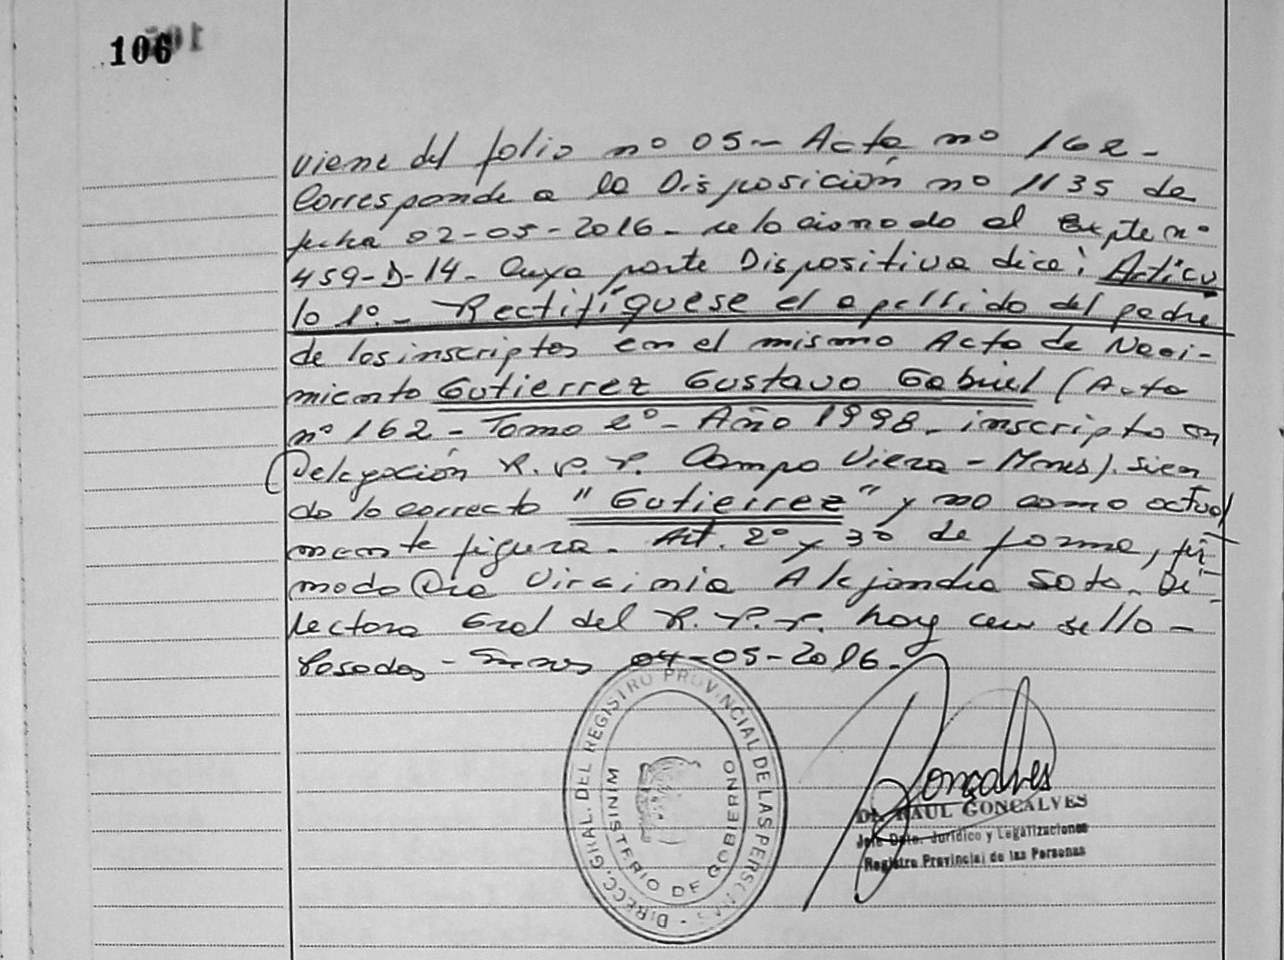 106
viene del folio nº 05- Acta, nº 162-
Corresponde a la Disposición nº 1135 de
fecha 02-05-2016- relacionado al Expte nº
459-D-14- Cuya parte Dispositiva dice: Artícu
lo 1º.- Rectifíquese el apellido del padre
de los inscriptos en el mismo Acta de Naci-
miento Gutierrez Gustavo Gabriel (Acta
nº 162- Tomo 2º- Año 1998, inscripto en
Delegación R.P.P. Campo Viera - Mnes). sien
do lo correcto "Gutierrez" y no como actual
mente figura. Art. 2º y 3º de forma, fir
mado Dra Virginia Alejandra Soto. Di-
rectora Gral del R.P.P. hay un sello-
Posadas - Mnes 04-05-2016.
DIRECC. GRAL. DEL REGISTRO PROVINCIAL DE LAS PERSONAS
MINISTERIO DE GOBIERNO
Gonçalves
Dr. RAUL GONCALVES
Jefe Dpto. Jurídico y Legalizaciones
Registro Provincial de las Personas